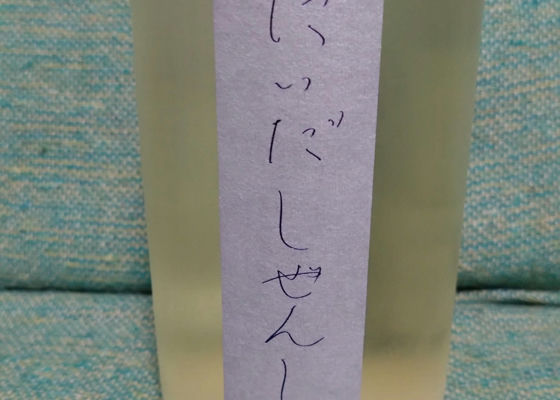 にいだしぜんし